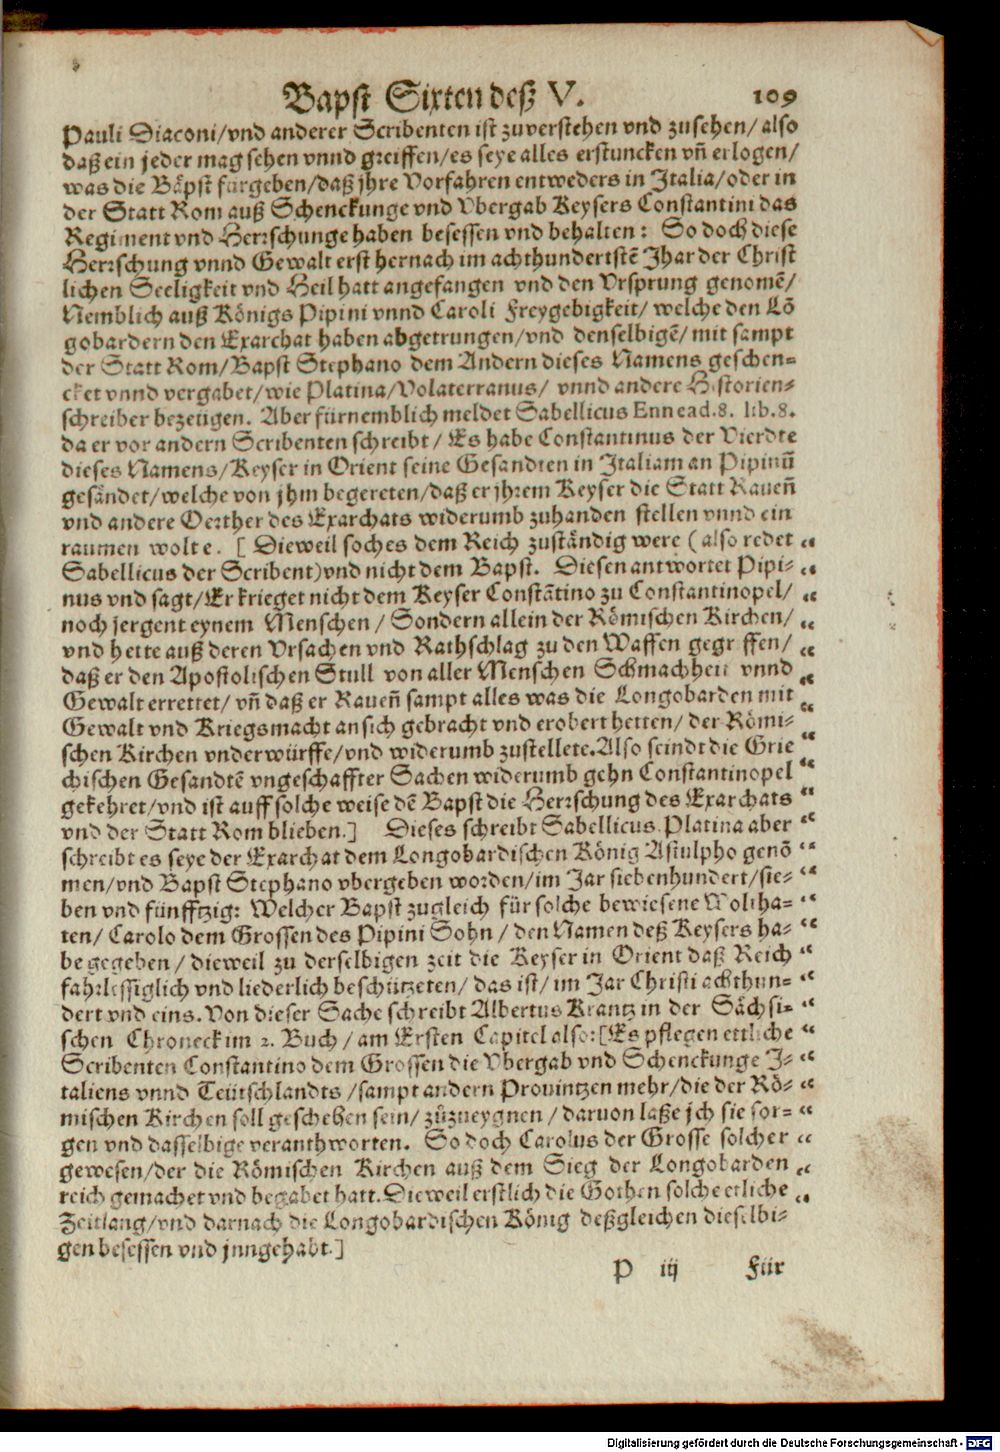 Bapst Sixten deß V. 109
Pauli Diaconi/vnd anderer Scribenten ist zuverstehen vnd zusehen/also
daß ein jeder mag sehen vnnd greiffen/es seye alles erstuncken vñ erlogen/
was die Bäpst fürgeben/daß jhre Vorfahren entweders in Italia/oder in
der Statt Rom auß Schenckunge vnd Vbergab Keysers Constantini das
Regiment vnd Herrschunge haben besessen vnd behalten: So doch diese
Herrschung vnnd Gewalt erst hernach im achthundertstē Jhar der Christ
lichen Seeligkeit vnd Heil hatt angefangen vnd den Vrsprung genomē/
Nemblich auß Königs Pipini vnnd Caroli Freygebigkeit/ welche den Lō
gobardern den Exarchat haben abgetrungen/vnd denselbigē/ mit sampt
der Statt Rom/Bapst Stephano dem Andern dieses Namens geschen-
cket vnnd vergabet/wie Platina/Volaterranus/ vnnd andere Historien-
schreiber bezeügen. Aber fürnemblich meldet Sabellicus Ennead.8. lib.8.
da er vor andern Scribenten schreibt/ Es habe Constantinus der Vierdte
dieses Namens/Keyser in Orient seine Gesandten in Italiam an Pipinū
gesändet/welche von jhm begereten/daß er jhrem Keyser die Statt Raueñ
vnd andere Oerther des Exarchats widerumb zuhanden stellen vnnd ein
raumen wolte. [ Dieweil soches dem Reich zuständig were (also redet “
Sabellicus der Scribent) vnd nicht dem Bapst. Diesen antwortet Pipi- “
nus vnd sagt/Er krieget nicht dem Keyser Constātino zu Constantinopel/ “
noch jergent eynem Menschen/ Sondern allein der Römischen Kirchen/ “
vnd hette auß deren Vrsachen vnd Rathschlag zu den Waffen gegriffen/ “
daß er den Apostolischen Stull von aller Menschen Schmachheit vnnd “
Gewalt errettet/ vñ daß er Raueñ sampt alles was die Longobarden mit “
Gewalt vnd Kriegsmacht an sich gebracht vnd erobert hetten/ der Römi- “
schen Kirchen vnderwürffe/vnd widerumb zustellete. Also seindt die Grie “
chischen Gesandtē vngeschaffter Sachen widerumb gehn Constantinopel “
gekehret/vnd ist auff solche weise dē Bapst die Herrschung des Exarchats “
vnd der Statt Rom blieben.] Dieses schreibt Sabellicus. Platina aber “
schreibt es seye der Exarchat dem Longobardischen König Astulpho genō “
men/vnd Bapst Stephano vbergeben worden/im Jar siebenhundert/sie- “
ben vnd fünfftzig: Welcher Bapst zugleich für solche bewiesene Woltha- “
ten/ Carolo dem Grossen des Pipini Sohn/ den Namen deß Keysers ha- “
be gegeben/ dieweil zu derselbigen zeit die Keyser in Orient daß Reich “
fahrlessiglich vnd liederlich beschützeten/ das ist/ im Jar Christi achthun- “
dert vnd eins. Von dieser Sache schreibt Albertus Krantz in der Sächsi- “
schen Chroneck im 2. Buch/ am Ersten Capitel also: [Es pflegen ettliche “
Scribenten Constantino dem Grossen die Vbergab vnd Schenckunge J- “
taliens vnnd Teütschlandts /sampt andern Prouintzen mehr/die der Rö- “
mischen Kirchen soll geschehen sein/ zůzueygnen/ daruon laße jch sie sor- “
gen vnd dasselbige veranthworten. So doch Carolus der Grosse solcher “
gewesen/der die Römischen Kirchen auß dem Sieg der Longobarden “
reich gemachet vnd begabet hatt. Dieweil erstlich die Gothen solche etliche “
Zeitlang/vnd darnach die Longobardischen König deßgleichen dieselbi-
gen besessen vnd jnngehabt.]
P iij Für
Digitalisierung gefördert durch die Deutsche Forschungsgemeinschaft - DFG